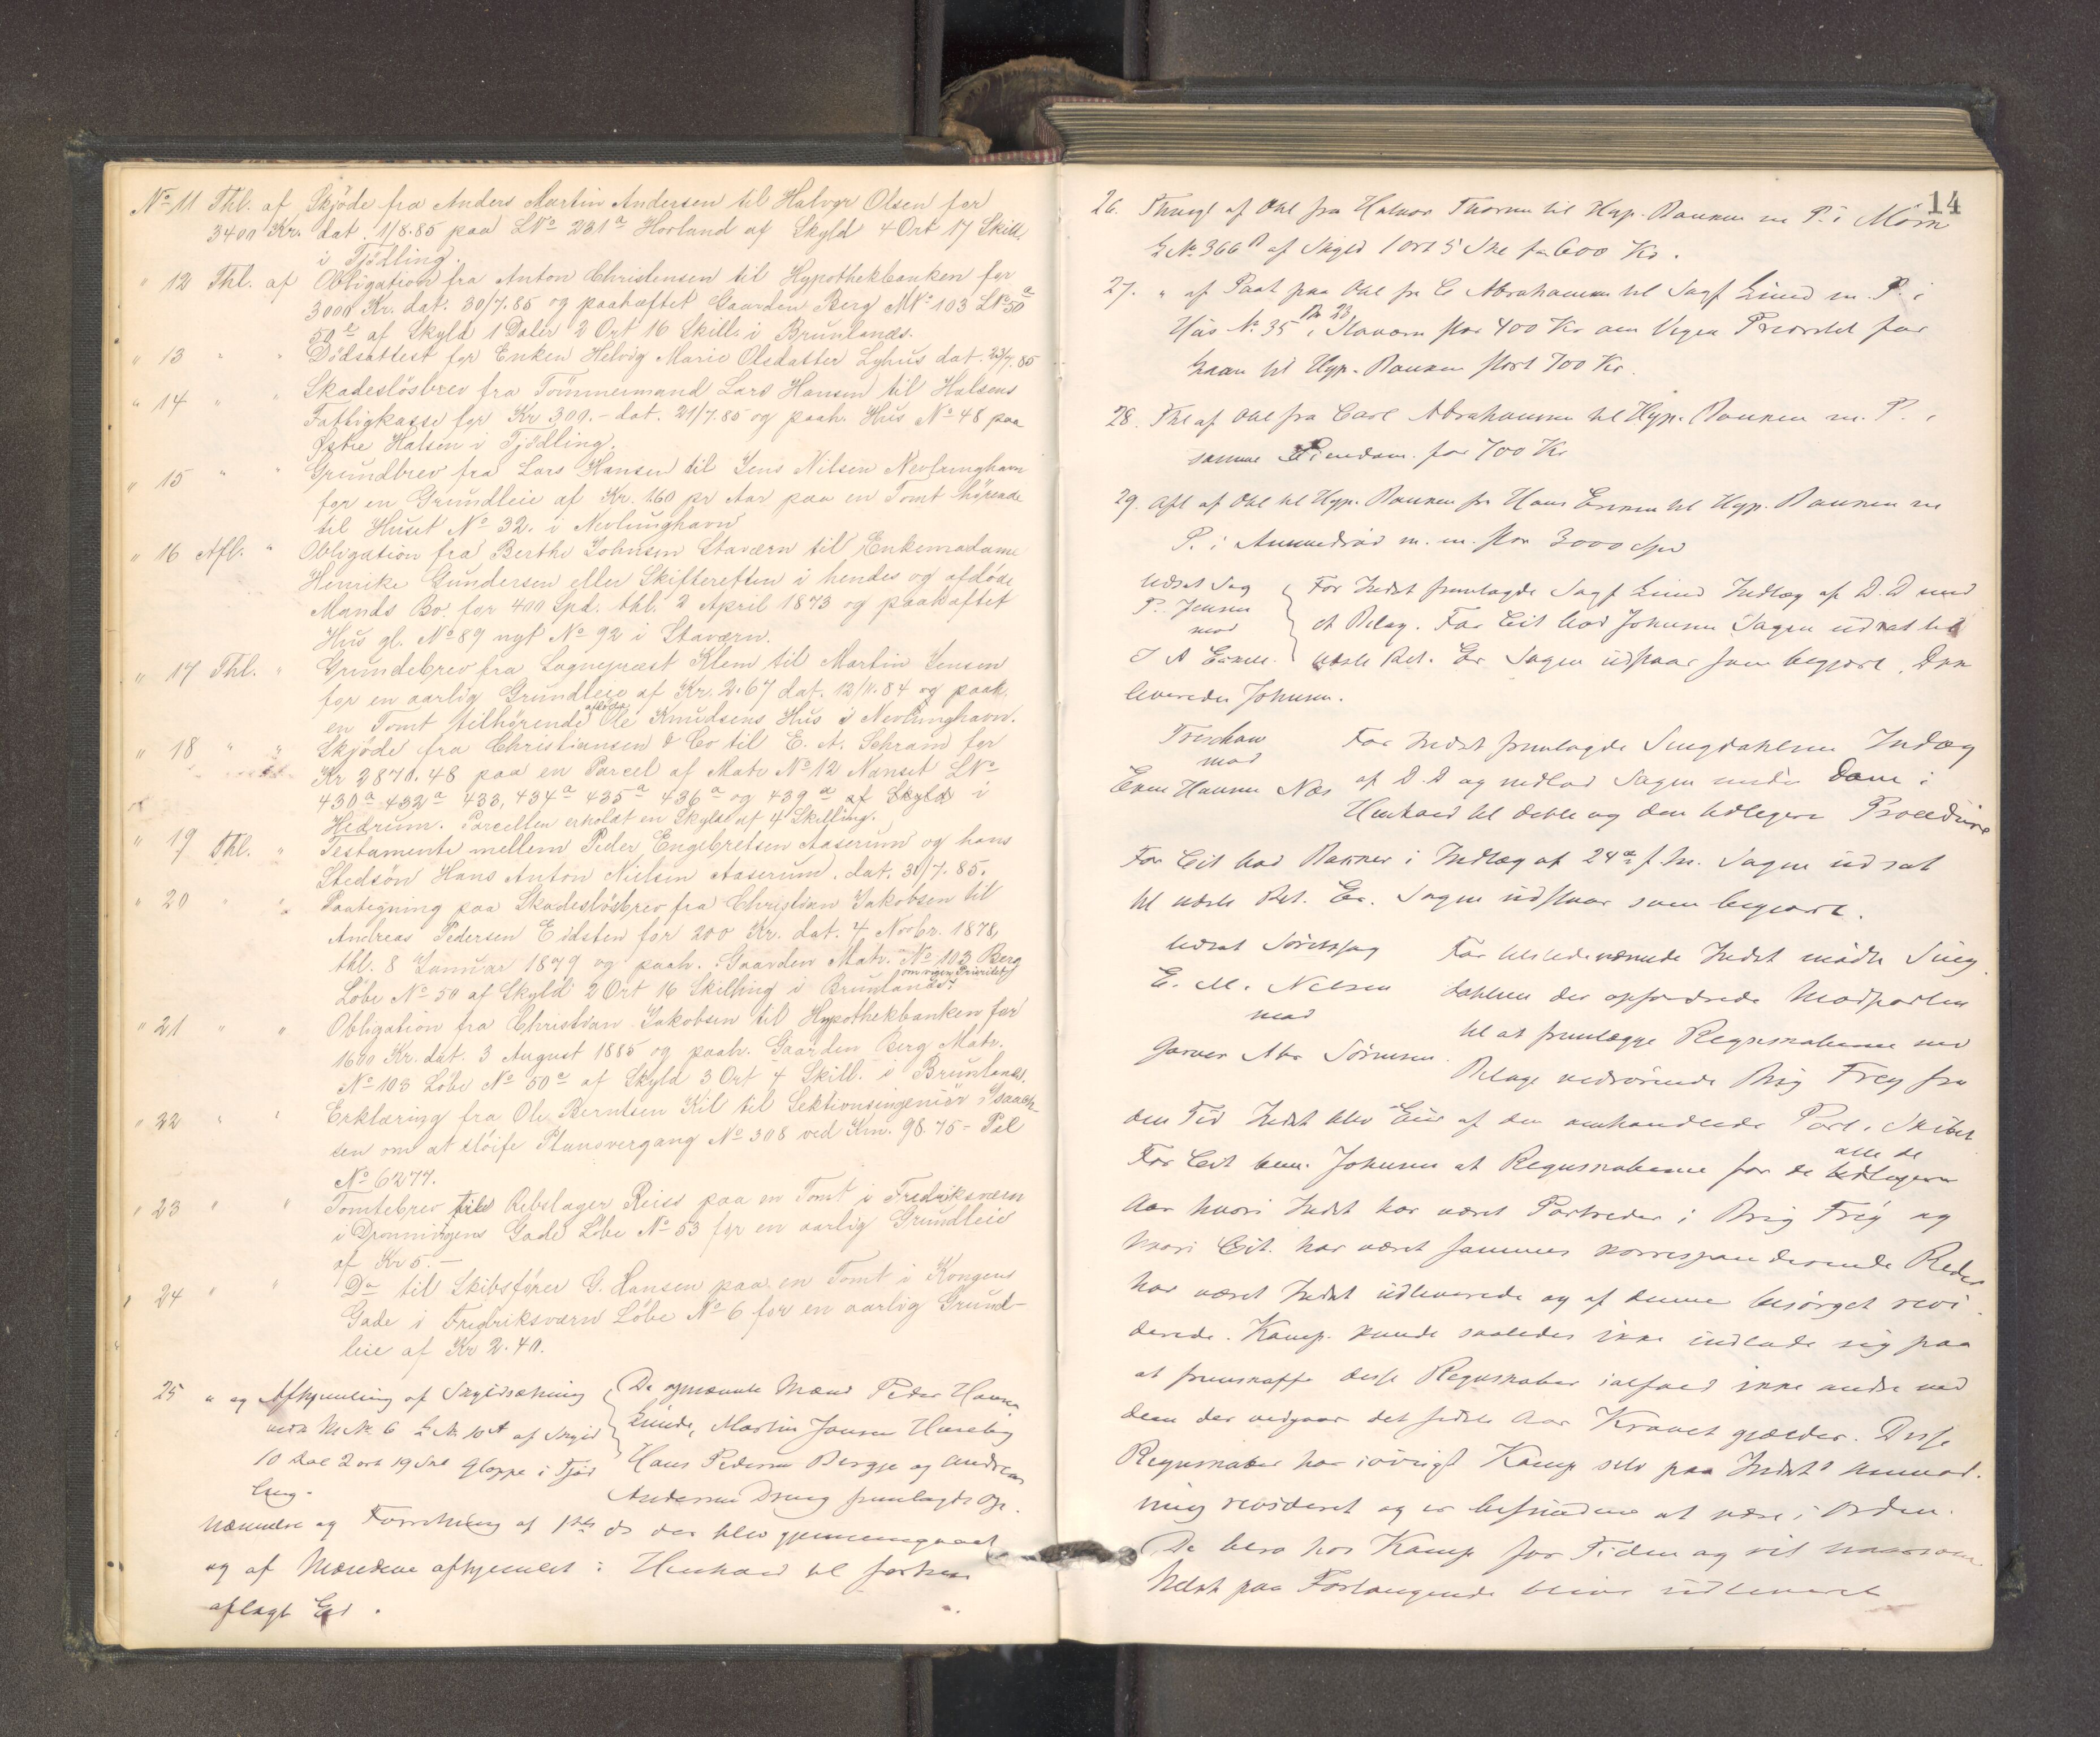 No 11 Thl. af Skjöde fra Anders Martin Andersen til Halvor Olsen for
3400 Kr. dat. 1/8.85 paa LNo 231a Horland af Skyld 4 Ort 17 Skill.
i Tjödling.
" 12 Thl. af Obligation fra Anton Christensen til Hypothekbanken for
3000 Kr. dat. 30/7.85 og paaheftet Gaarden Berg MNo 103 LNo 50a
50c af Skyld 1 Daler 2 Ort 16 Skill. i Brunlanes.
" 13 " " Dödsattest for Enken Helvig Marie Olsdatter Lyhus dat. 23/7.85
" 14 " " Skadeslösbrev fra Tömmermand Lars Hansen til Halsens
Fattigkasse for Kr 300.- dat. 21/7.85 og paah. Hus No 48 paa
Østre Halsen i Tjödling.
" 15 " " Grundbrev fra Lars Hansen til Jens Nilsen Nevlunghavn
for en Grundleie af Kr. 1.60 pr Aar paa en Tomt hörende
til Huset No 32. i Nevlunghavn
" 16 Afl. " Obligation fra Berthe Johnsen Staværn til Enkemadame
Henrike Gundersen eller Skifteretten i hendes og afdöde
Mands Bo for 400 Spd. thl. 2 April 1873 og paahæftet
Hus gl. No 89 nyt No 92 i Staværn.
" 17 Thl. " Grundebrev fra Sognepræst Klem til Martin Jensen
for en aarlig Grundleie af Kr. 2.67 dat. 12/11.84 og paah.
en Tomt tilhörende afdöde Ole Knudsens Hus i Nevlunghavn.
" 18 " " Skjöde fra Christiansen & Co til E. A. Schram for
Kr 2870.48 paa en Parcel af Matr No 12 Nanset LNo
430a 432a 433, 434a 435a 436a og 439a af Skyld i
Hedrum. Parcellen erholdt en Skyld af 4 Skilling.
" 19 Thl. " Testamente mellem Peder Engebretsen Aaserum og hans
Stedsön Hans Anton Nielsen Aaserum. dat. 31/7.85.
" 20 " " Paategning paa Skadeslösbrev fra Christian Jakobsen til
Andreas Pedersen Eidsten for 200 Kr. dat. 7 Novbr. 1878,
thl. 8 Januar 1879 og paah. Gaarden Matr. No 103 Berg
Löbe No 50 af Skyld 2 Ort 16 Skilling i Brunlanes. om vigen Prioritet
" 21 " " Obligation fra Christian Jakobsen til Hypothekbanken for
1600 Kr. dat. 3 August 1885 og paah. Gaarden Berg Matr.
No 103 Löbe No 50a af Skyld 3 Ort 4 Skill. i Brunlanes.
" 22 " " Erklæring fra Ole Berntsen Kil til Sektionsingeniör Isaach-
sen om at slöife Planovergang No 308 ved Km. 98.75 - Pæl
No 6277.
" 23 " " Tomtebrev til Rebslager Reiss paa en Tomt i Fredriksværn
i Dronningens Gade Löbe No 53 for en aarlig Grundleie
af Kr 5.-
" 24 " " Do til Skibsförer G. Hansen paa en Tomt i Kongens
Gade i Fredriksværn Löbe No 6 for en aarlig Grund-
leie af Kr 2.40.
25 " og Afhjemling af Skyldsætning De opnævnte Mænd Peder Hansen
vedk MNo 6 LNo 10A af Skyld Lunde, Martin Jensen Huseby
10 Dal 2 ort 19 Skl Gloppe i Tjød Hans Pedersen Bergje og Andreas
ling. Andersen fremlagde Op.
nævnelse og Forretning af ds der blev gjennemgaaet
og af Mændene afhjemlet i Henhold til forhen
aflagt Ed.
14
26. Thingl af Obl fra Halvor Thorsen til Hyp. Banken m P. i Mörn
LNo 366B af Skyld 1 ort 5 Skl for 600 Kr.
27. " af Paat paa Obl fr C Abrahamsen til Sagf Lund m. P. i
Hus No 35 i Staværn stor 400 Kr om Vigen Prioritet for
Laan til Hyp. Banken stort 700 Kr.
28. Thl af Obl fra Carl Abrahamsen til Hyp. Banken m. P. i
samme Eiendom. for 700 Kr
29. Afl af Obl til Hyp. Banken fr Hans til Hyp. Banken m
P. i m. m. stor 3000 Spd
Udsat Sag For Indst fremlagde Sagf Lund Indlæg af D.D med
P. Jensen
mod et Bilag. For Cit bad Johnsen Sagen udsat til
J A næste Ret. Er Sagen udstaar som begjært. Dok
leveredes Johnsen.
Treschow For Indst fremlagde Smgdahlsen Indlæg
mod
Even Hansen Næs af D.D og indlod Sagen under Dom i
Henhold til dette og den tidligere Procedure
For Cit bad Bakker i Indlæg af 24de f. M. Sagen udsat
til næste Ret. Er. Sagen udstaar som begjært.
Udsat Söretssag For tilstedeværende Indst mødte Sing
E. M. Nelsen dahlsen der opfordrede Modparten
mod
Garver Abr Sörensen. til at fremlægge Regnskaberne med
Bilage vedrörende Brig Frey fra
den Tid Indst blev Eier af den omhandlede Part i Skibet
For Cit bem. Johnsen at Regnskaberne for de alle de tidligere
Aar hvori Indst har været Partreder i Brig Frey og
hvori Cit. har været sammes korresponderende Reder
har været Indst udleverede og af denne besörget revi
derede. Komp. kunde saaledes ikke indlade sig paa
at fremskaffe disse Regnskaber ialfald ikke andre end
dem der vedgaar det sidste Aar Kravet gjælder. Disse
Regnskaber har iövrigt Komp selv paa Indsts Anmod.
ning revideret og er befunden at være i Orden.
De bero hos Komp for Tiden og vil naarsom
helst paa Forlangende blive udleveret